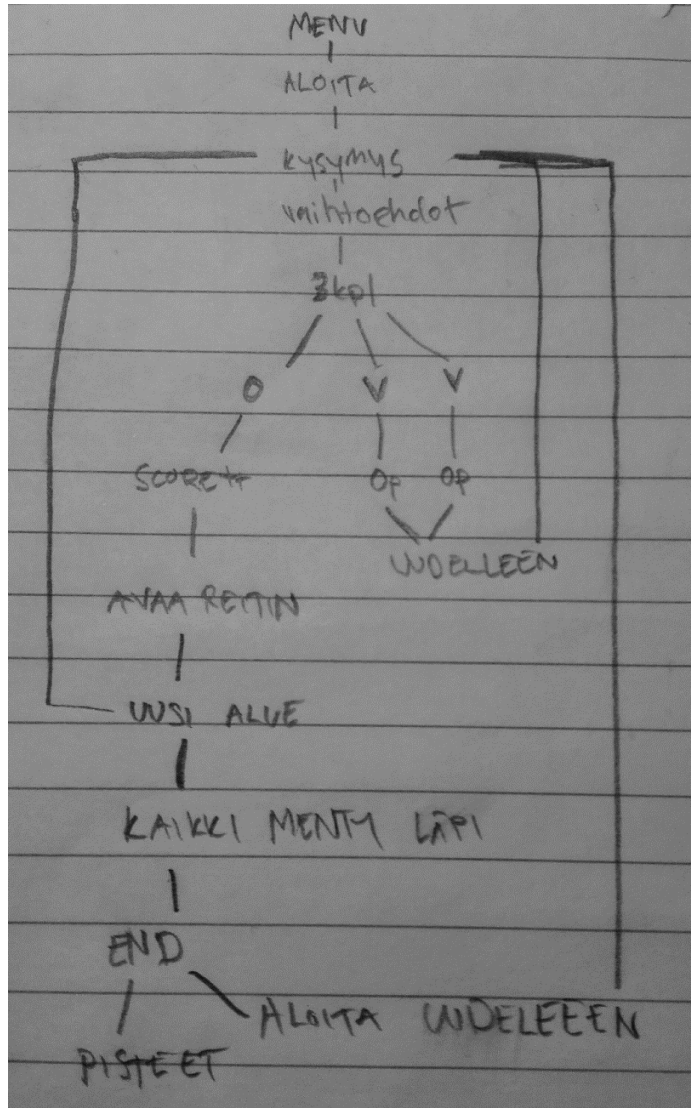 MENU
ALOITA
KYSYMYS
vaihtoehdot
3kpl
O V V
SCORE++ OP OP
UUDELLEEN
AVAA REITIN
UUSI ALUE
KAIKKI MENTY LÄPI
END
ALOITA UUDELEEEN
PISTEET